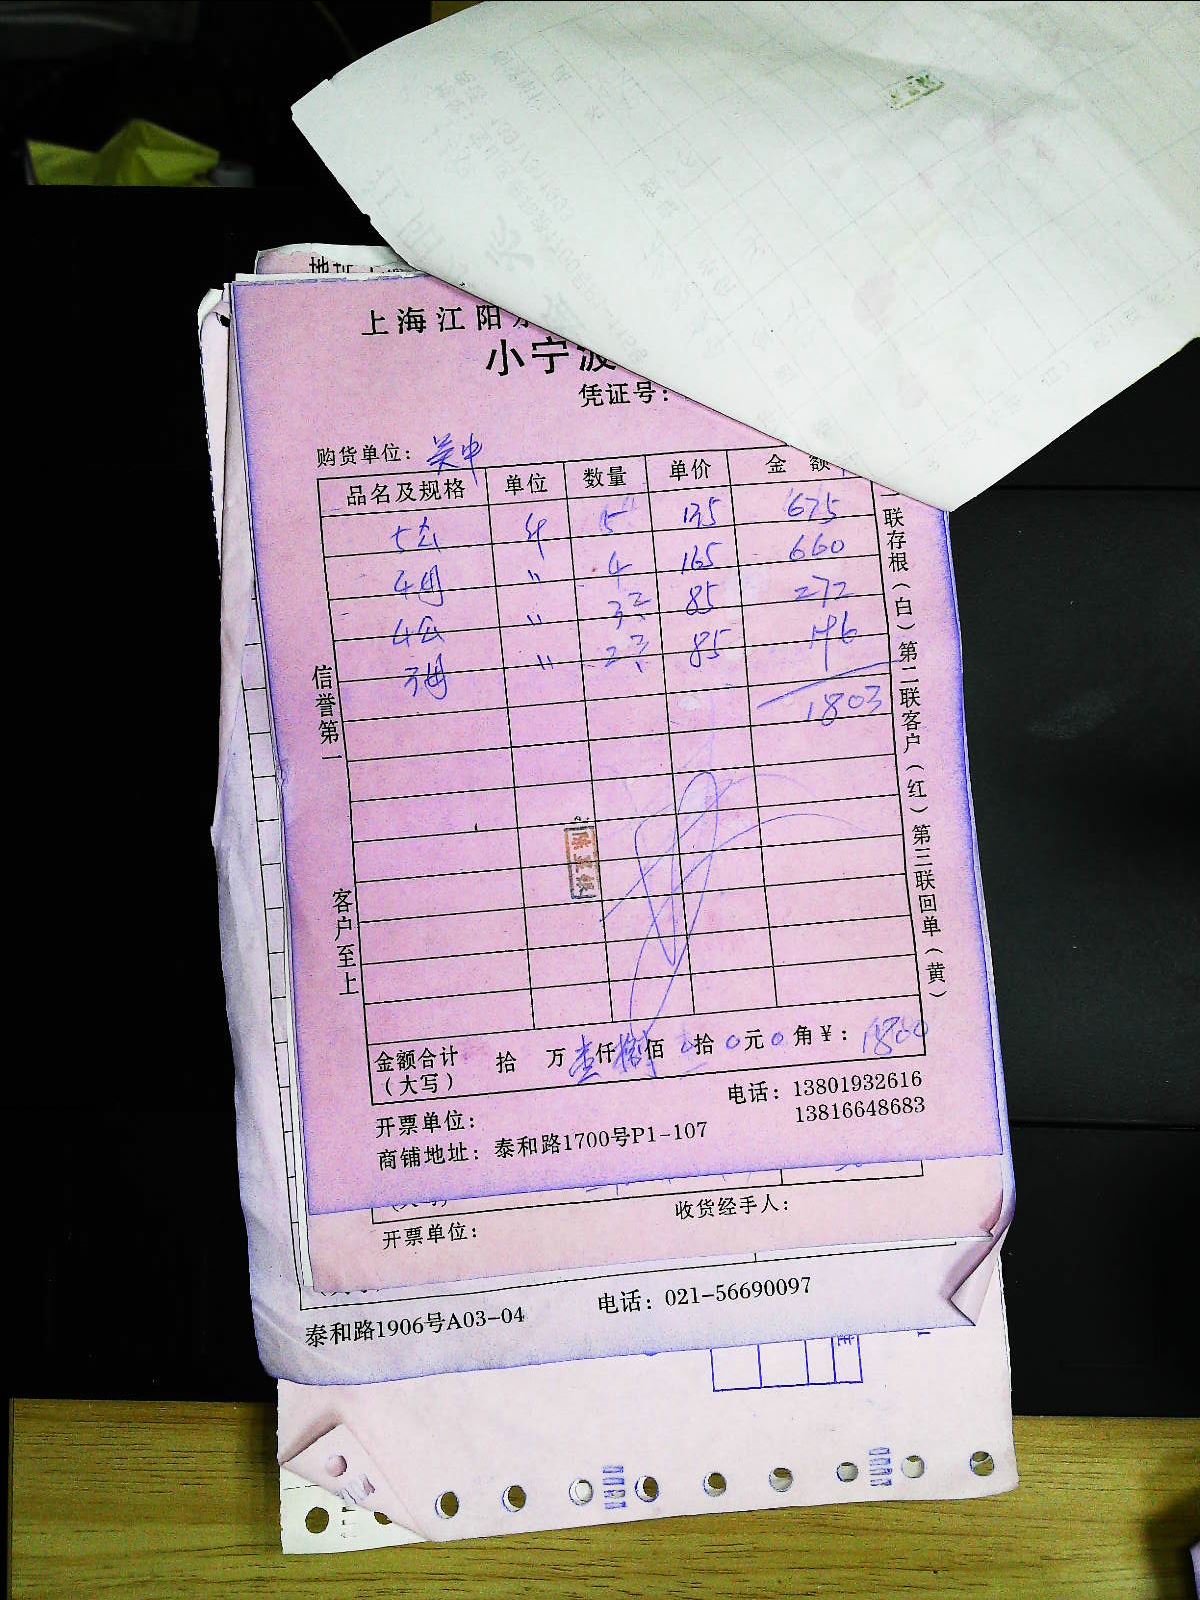 上海江阳
小宁波
凭证号：
购货单位：吴中
品名及规格 单位 数量 单价 金额
5公 斤 5 135 675
4母 〃 4 165 660
4公 〃 85 272
3母 〃 85 196
1803
信誉第一 客户至上
一联存根（白）第二联客户（红）第三联回单（黄）
金额合计（大写） 拾 万 壹仟捌佰 0拾0元0角￥：1800
开票单位： 电话：13801932616
13816648683
商铺地址：泰和路1700号P1-107
收货经手人：
开票单位：
泰和路1906号A03-04 电话：021-56690097